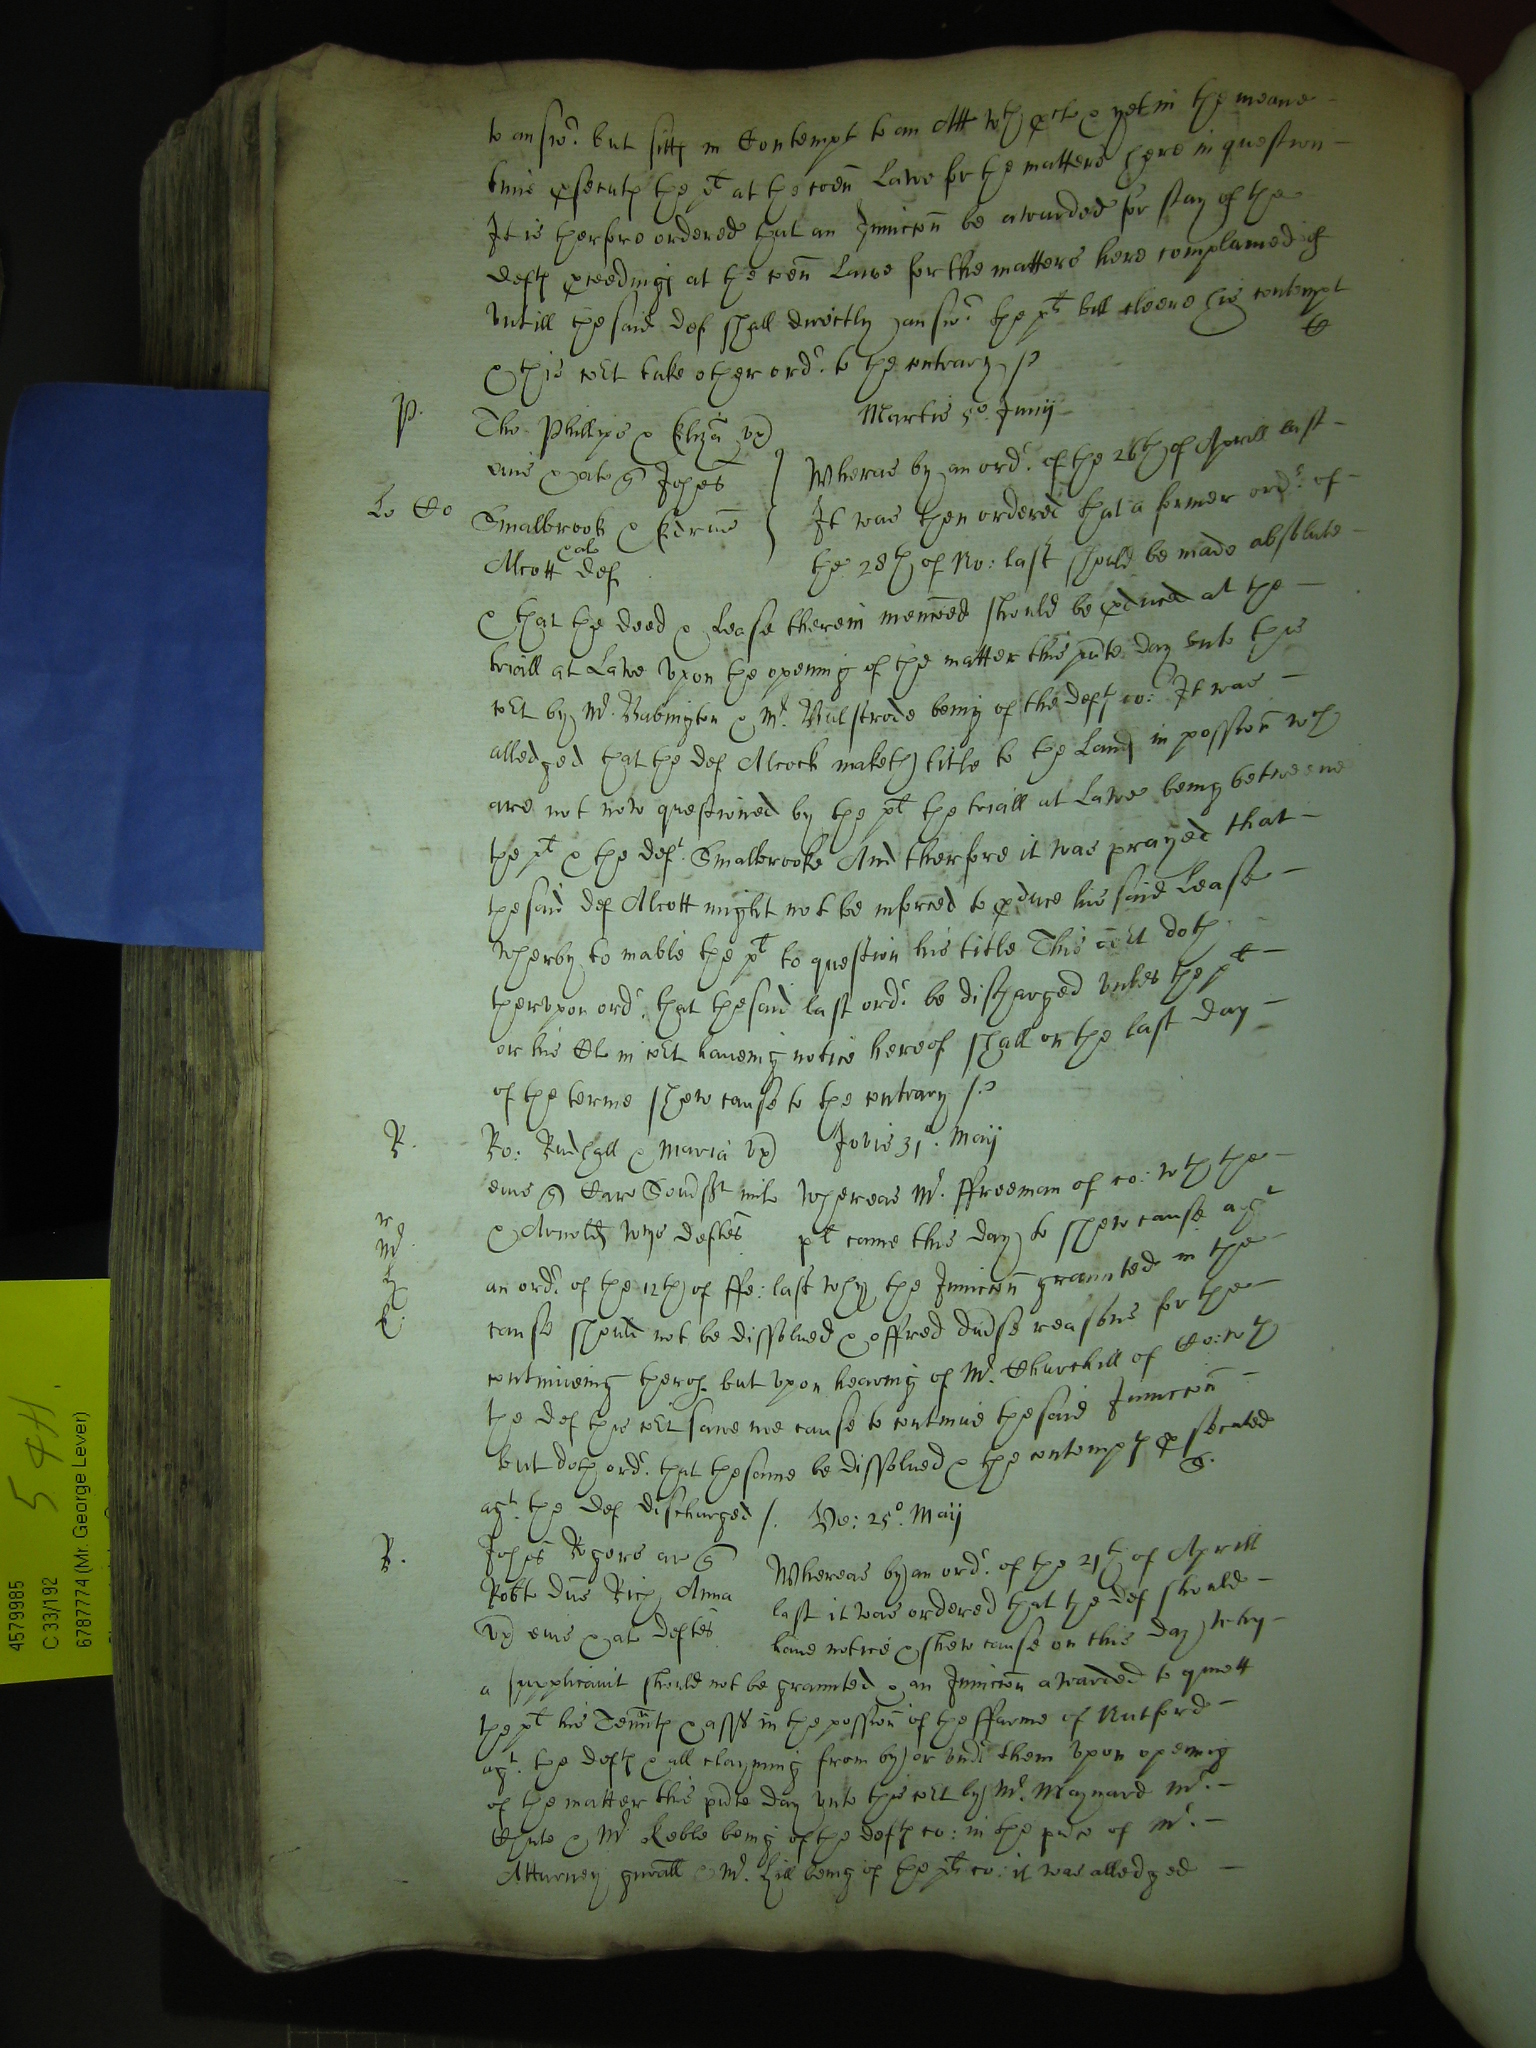 to answ:r but sitts in Contempt to an Att wth pcla & yet in the meane
time psecuts the plt at the coen Lawe for the matters here in question
It is therfore ordered that an Iniuccon be awarded for stay of the
defts pceedings at the coen Lawe for the matters here complained of
vntill the said def shall directly answ:r the plts bill cleere his contempt
& this cort take other ordr. to the contrary /
P. Tho: Phillips & Eliza vx Martis 5o Junij
eius & al q Johes } Wheras by an ordr. of the 26th of Aprill last
Lo Co Smalbrook & Edrus } It was then ordered that a former ordr. of
Alcott & al def the 28th of No: last should be made absolute
& that the deed & Lease therein menconed should be pduced at the
triall at Lawe vpon the opening of the matter this pnte day vnto this
cort by Mr. Babington & Mr. Bulstrode being of the defts co: It was
alledged that the def Alcock maketh title to the Lands in possion wch
are not now questioned by the plt the triall at Lawe being betweene
the plt & the deft. Smalbrooke And therfore it was prayed that
the said def Alcott might not be inforced to pduce his said Lease
wherby to inable the plt to question his title This cort doth
thervpon ordr. that the said last ordr. be discharged vnles the plt
or his Cl in cort haueing notice hereof shall on the last day
of the terme shew cause to the contrary /
R. Ro: Rudhall & Maria vx Jovis 31o. Maij
eius q milit Whereas Mr. ffreeman of co: wth the
& Arnold deftes plt came this day to shew cause agt
Mr an ordr. of the 12th of ffe: last why the Iniuccon graunted in the
cause should not be dissolued & offred diuse reasons for the
continueing therof but vpon hearing of Mr. Churchill of Co: wth
the def this cort sawe noe cause to continue the said Iniuccon
but doth ordr. that the same be dissolued & the contempts psecuted
agt. the def discharged /. Ve: 25o. Maij
R. Johes Rogers ar q Whereas by an ordr. of the 21th of Aprill
Robte dus Rich Anna last it was ordered that the def should
vx eius & al deftes haue notice & shew cause on this day why
a supplicauit should not be graunted & an Iniuccon awarded to quiett
the plt his Tennts & asss in the possion of the ffarme of Rutford
agt. the defts & all clayming from by or vnd them vpon opening
of the matter this pnte day vnto this cort by Mr. Maynard Mr.
Chute & Mr Keble being of the defts co: in the pnce of Mr.
Atturney gnrall & Mr. Hill being of the plts co: it was alledged
4579985
C 33/192
6787774 (Mr. George Lever)
54H.